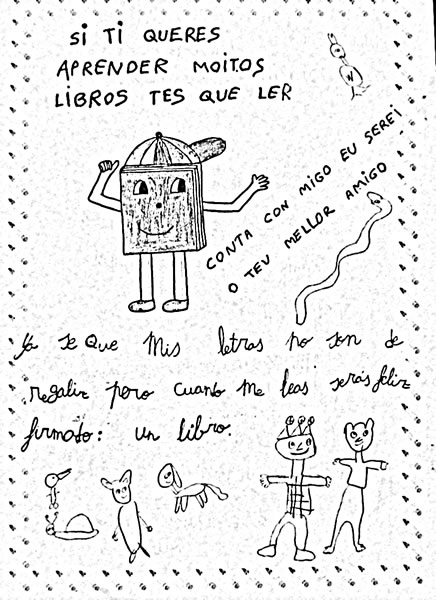 SI TI QUERES
APRENDER MOITOS
LIBROS TES QUE LER
CONTA CON MIGO EU SEREI
O TEU MELLOR AMIGO
Ya se que Mis letras no son de
regaliz pero cuanto me leas serás feliz
firmato: un libro.